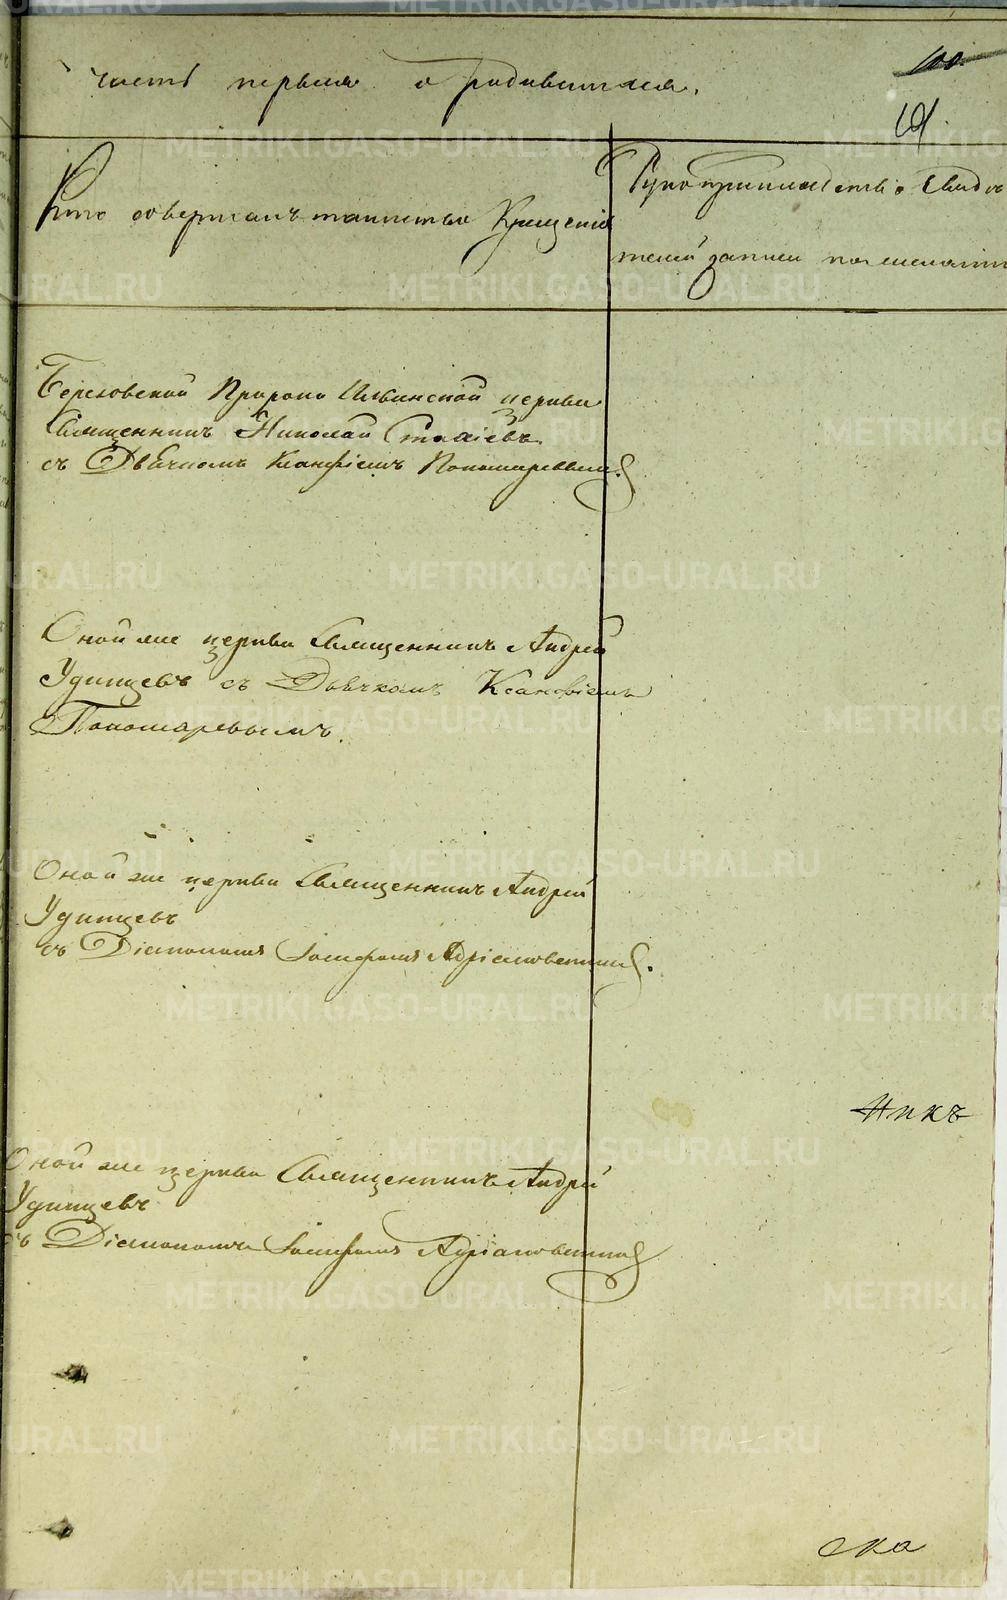 часть первая о родившихся.
101.
Кто совершалъ таинство Крещенія
Рукоприкладство Свидѣ
телей записи по желанію
Березовской Пророко Ильинской церкви
Священникъ Николай
съ Дьячкомъ Ксанфіемъ Пономаревымъ.
Оной же церкви Священникъ Андрей
Удинцевъ съ Дьячкомъ Ксанфіемъ
Пономаревымъ.
Оной же церкви Священникъ Андрей
Удинцевъ
съ Діакономъ Іосифомъ Адріановскимъ.
Оной же церкви Священникъ Андрей
Удинцевъ
съ Діакономъ Іосифомъ Адріановскимъ
METRIKI.GASO-URAL.RU